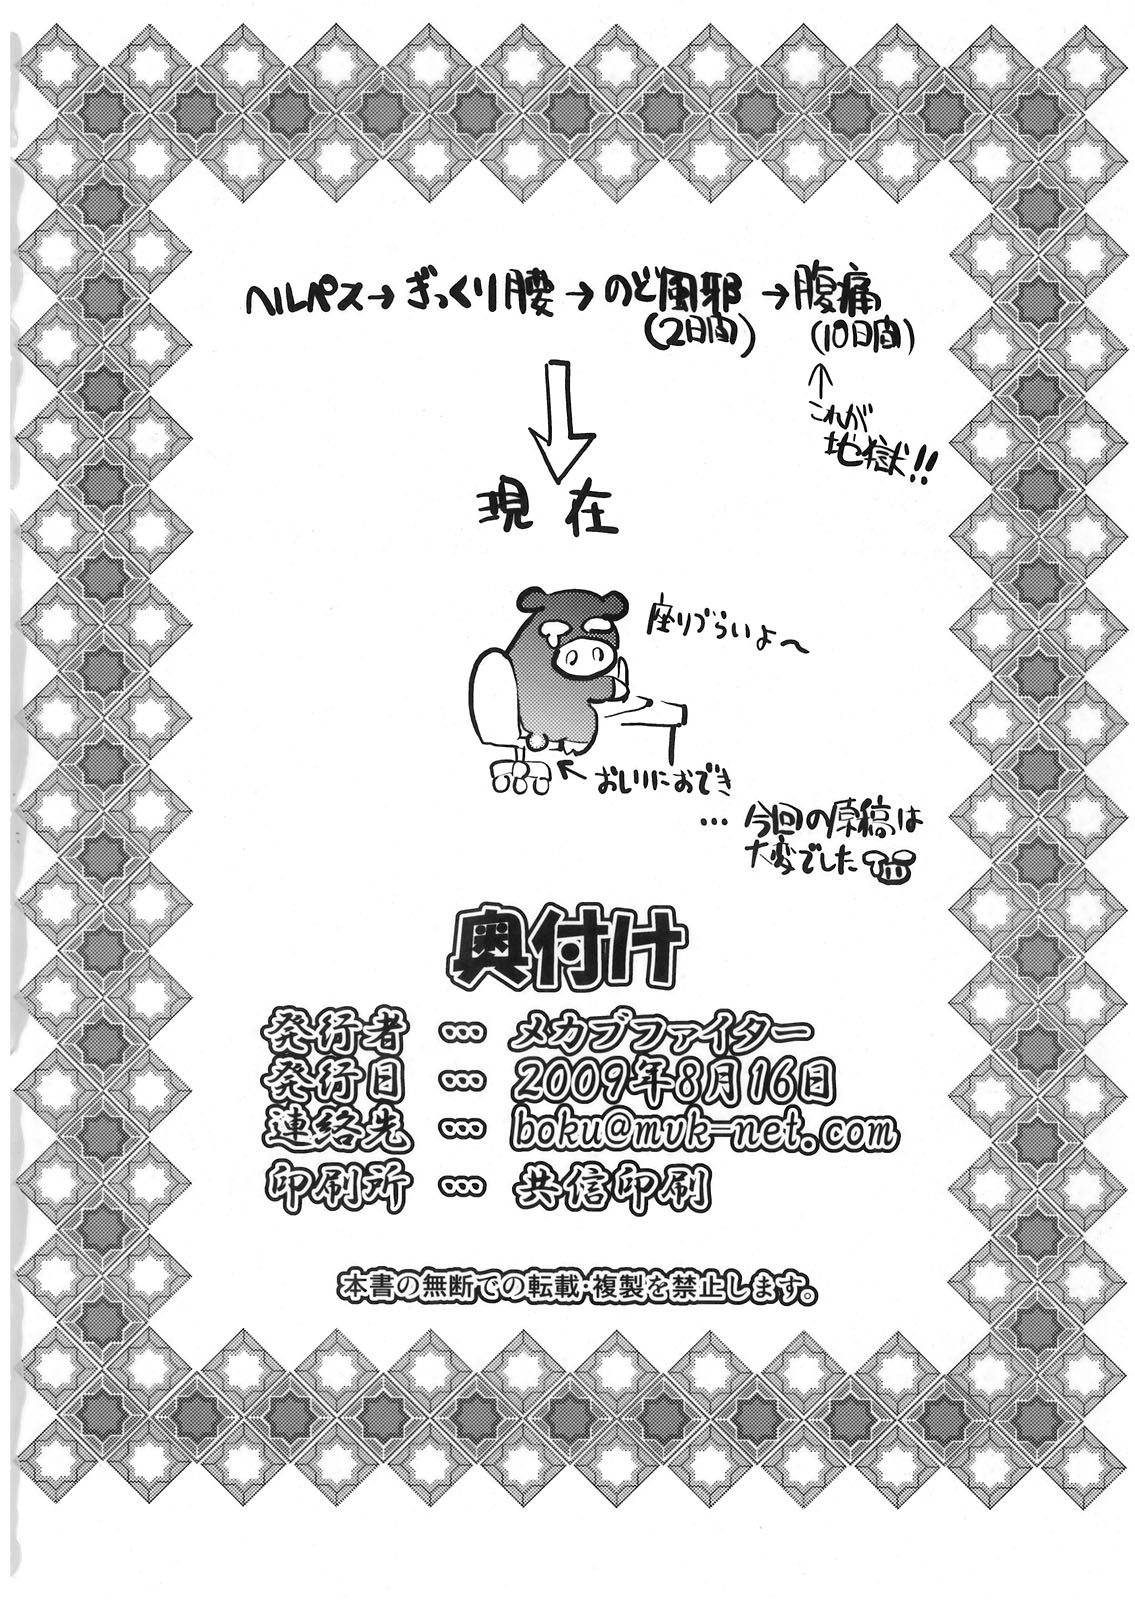 ヘルペス→ぎっくり腰→のど風邪→腹痛
(2日間) (10日間)
↑
これが
地獄!!
現在
座りづらいよ〜
おしりにおでき
… 今回の原稿は
大変でした
奥付け
発行者 … メカブファイター
発行日 … 2009年8月16日
連絡先 … boku@mvk-net.com
印刷所 … 共信印刷
本書の無断での転載・複製を禁止します。